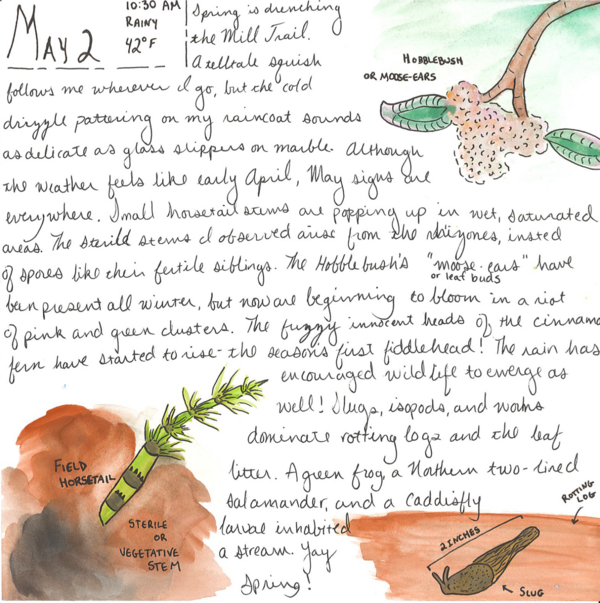 May 2
10:30 AM
Rainy
42°F
Spring is drenching
the Mill Trail.
A telltale squish
follows me wherever I go, but the cold
drizzle pattering on my raincoat sounds
as delicate as glass slippers on marble. Although
the weather feels like early April, May signs are
everywhere. Small horsetail stems are popping up in wet, saturated
areas. The sterile stems I observed arise from the rhizomes, insted
of spores like their fertile siblings. The Hobblebush's "moose-ears" have
or leaf buds
been present all winter, but now are beginning to bloom in a riot
of pink and green clusters. The fuzzy innocent heads of the cinnamo
fern have started to rise - the seasons first fiddlehead! The rain has
encouraged wildlife to emerge as
well! Slugs, isopods, and worms
dominate rotting logs and the leaf
litter. A green frog, a Northern two-lined
salamander, and a caddisfly
larvae inhabited
a stream. Yay
Spring!
Hobblebush
or Moose-Ears
Field
Horsetail
Sterile
or
Vegetative
Stem
Rotting
Log
2 inches
Slug